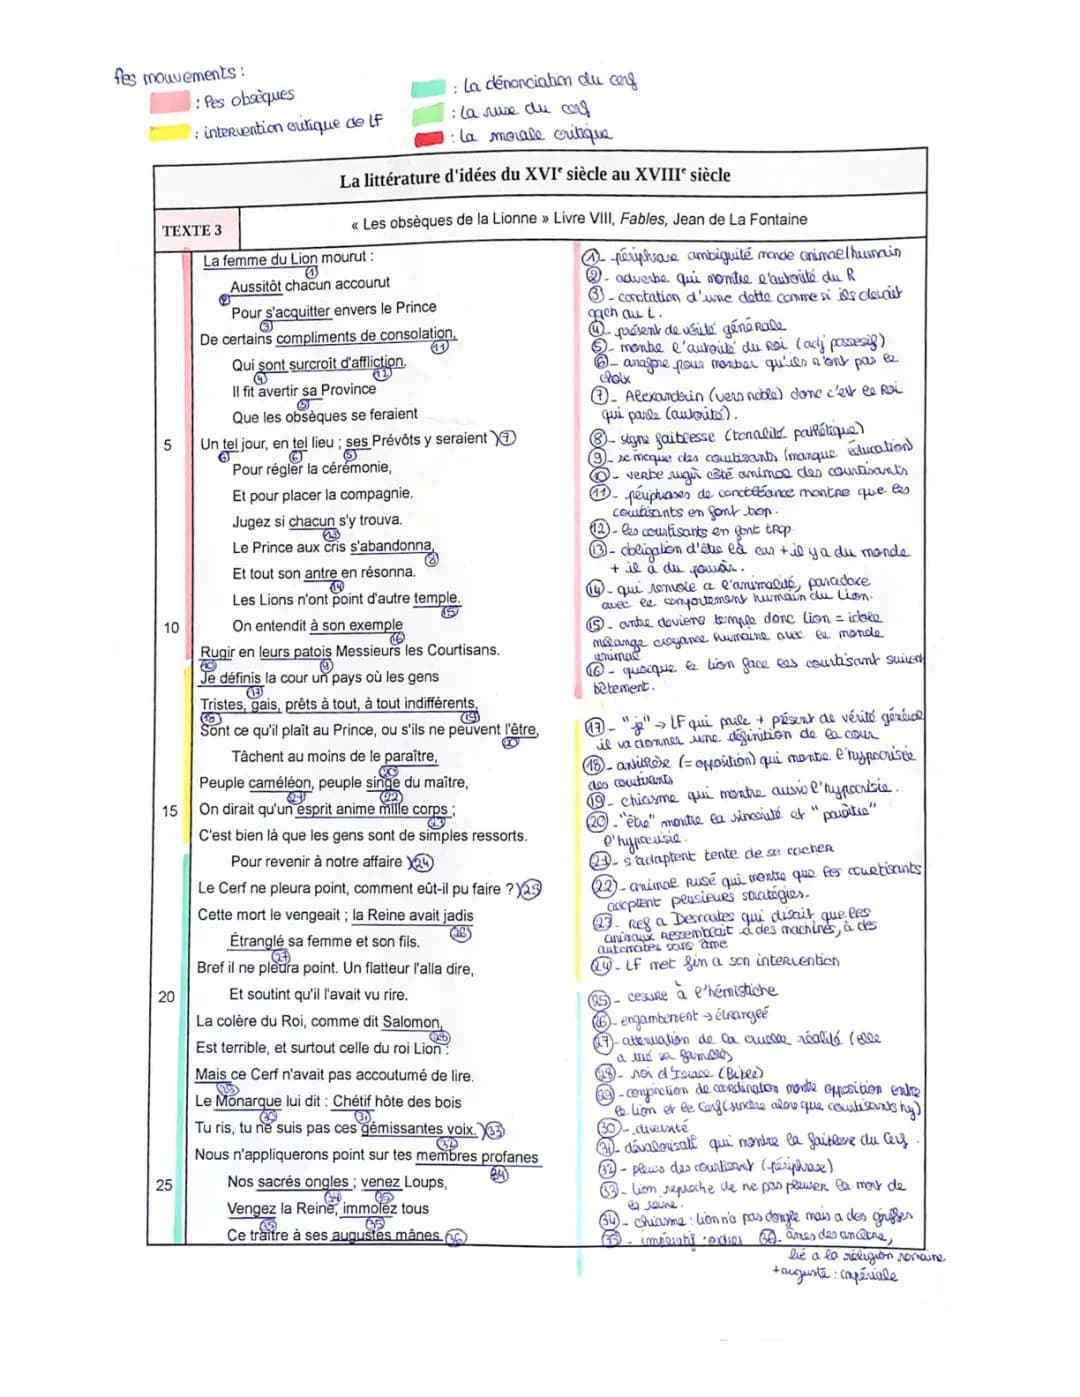 Les mouvements :
: Les obsèques
: intervention critique de LF
: La dénonciation du cerf
: La ruse du cerf
: La morale critique
La littérature d'idées du XVIe siècle au XVIIIe siècle
TEXTE 3
« Les obsèques de la Lionne » Livre VIII, Fables, Jean de La Fontaine
La femme du Lion mourut :
①
Aussitôt chacun accourut
②
Pour s'acquitter envers le Prince
③
De certains compliments de consolation,
⑪
Qui sont surcroît d'affliction.
④ ⑫
Il fit avertir sa Province
⑤
Que les obsèques se feraient
5 Un tel jour, en tel lieu ; ses Prévôts y seraient ⑦
⑥ ⑥ ⑤
Pour régler la cérémonie,
Et pour placer la compagnie.
Jugez si chacun s'y trouva.
⑬
Le Prince aux cris s'abandonna,
⑧
Et tout son antre en résonna.
⑭
Les Lions n'ont point d'autre temple.
⑮
10 On entendit à son exemple
⑯
Rugir en leurs patois Messieurs les Courtisans.
⑩ ⑨
Je définis la cour un pays où les gens
⑰
Tristes, gais, prêts à tout, à tout indifférents,
⑱ ⑲
Sont ce qu'il plaît au Prince, ou s'ils ne peuvent l'être,
⑳
Tâchent au moins de le paraître,
⑳
Peuple caméléon, peuple singe du maître,
㉑ ㉒
15 On dirait qu'un esprit anime mille corps ;
㉓
C'est bien là que les gens sont de simples ressorts.
Pour revenir à notre affaire ㉔
Le Cerf ne pleura point, comment eût-il pu faire ? ㉕
Cette mort le vengeait ; la Reine avait jadis
㉖
Étranglé sa femme et son fils.
㉗
Bref il ne pleura point. Un flatteur l'alla dire,
20 Et soutint qu'il l'avait vu rire.
La colère du Roi, comme dit Salomon,
㉘
Est terrible, et surtout celle du roi Lion :
Mais ce Cerf n'avait pas accoutumé de lire.
Le Monarque lui dit : Chétif hôte des bois
㉚ ㉛
Tu ris, tu ne suis pas ces gémissantes voix. ㉝
㉜
Nous n'appliquerons point sur tes membres profanes
㉞
25 Nos sacrés ongles ; venez Loups,
㉞ ㉟
Vengez la Reine, immolez tous
㉟ ㉟
Ce traître à ses augustes mânes. ㊱
①- périphrase ambiguité monde animal/humain
②- adverbe qui montre l'autorité du R
③- conotation d'une dette comme si ils devait
qqch au L.
④- présent de vérité générale
⑤- montre l'autorité du Roi (adj possesif)
⑥- anafore pour montrer qu'ils n'ont pas le
choix
⑦- Alexandrin (vers noble) donc c'est le Roi
qui parle (autorité).
⑧- signe faiblesse (tonalité pathétique)
⑨- se moque des courtisants (manque éducation)
⑩- verbe rugir côté animal des courtisants
⑪- périphrases de montre que les
courtisants en font trop.
⑫- les courtisants en font trop
⑬- obligation d'être là car + il y a du monde
+ il a du pouvoir.
⑭- qui renvoie a l'animalité, paradoxe
avec le comportement humain du Lion.
⑮- antre deviens temple donc lion = idole
mélange croyance humaine avec le monde
animal
⑯- quoique le lion face les courtisant suivent
bêtement.
⑰- "je" → LF qui parle + présent de vérité générale
il va donner une définition de la cour
⑱- antithèse (= opposition) qui montre l'hypocrisie
des courtisants
⑲- chiasme qui montre aussi l'hypocrisie.
⑳- "être" montre la sincérité et "paraître"
l'hypocrisie.
㉑- s'adaptent tente de se cacher
㉒- animal rusé qui montre que les courtisants
adoptent plusieurs stratégies.
㉓- Ref a Descartes qui disait que les
animaux ressemblait à des machines, à des
automates sans âme
㉔- LF met fin a son intervention
㉕- cesure à l'hémistiche
㉖- engambement → étranglé
㉗- atténuation de la cruelle réalité (elle
a tué sa famille)
㉘- roi d'Israel (Bible)
㉙- conjonction de coordination montre opposition entre
le lion et le Cerf (sincère alors que courtisants hy)
㉚-
㉛- dévalorisatif qui montre la faiblesse du Cerf.
㉜- pleurs des courtisant (périphrase)
㉝- lion reproche de ne pas pleurer la mort de
la reine.
㉞- chiasme : lion n'a pas d'ongle mais a des griffes
㉟- impératif : ordres ㊱- âmes des ancêtres,
lié a la religion romaine
+ auguste : impériale